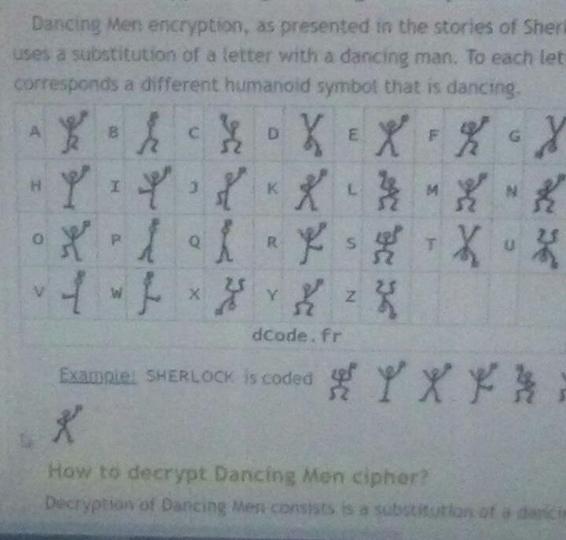 Dancing Men encryption, as presented in the stories of
uses a substitution of a letter with a dancing man. To each
corresponds a different humanoid symbol that is dancing.
A B C D E F G
H I J K L M N
O P Q R S T U
V W X Y Z
dCode.fr
Example: SHERLOCK is coded
How to decrypt Dancing Men cipher?
Decryption of Dancing Men consists is a substitution of a